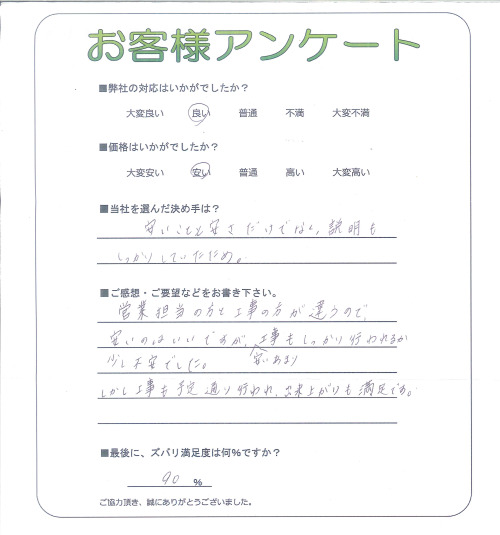 お客様アンケート
■弊社の対応はいかがでしたか？
大変良い 良い 普通 不満 大変不満
■価格はいかがでしたか？
大変安い 安い 普通 高い 大変高い
■当社を選んだ決め手は？
安いことと安さだけでなく、説明も
しっかりしていたため。
■ご感想・ご要望などをお書き下さい。
営業担当の方と工事の方が違うので、
安いのはいいですが、工事もしっかり行われるか
安いあまり
少し不安でした。
しかし工事も予定通り行われ、出来上がりも満足です。
■最後に、ズバリ満足度は何％ですか？
90 %
ご協力頂き、誠にありがとうございました。